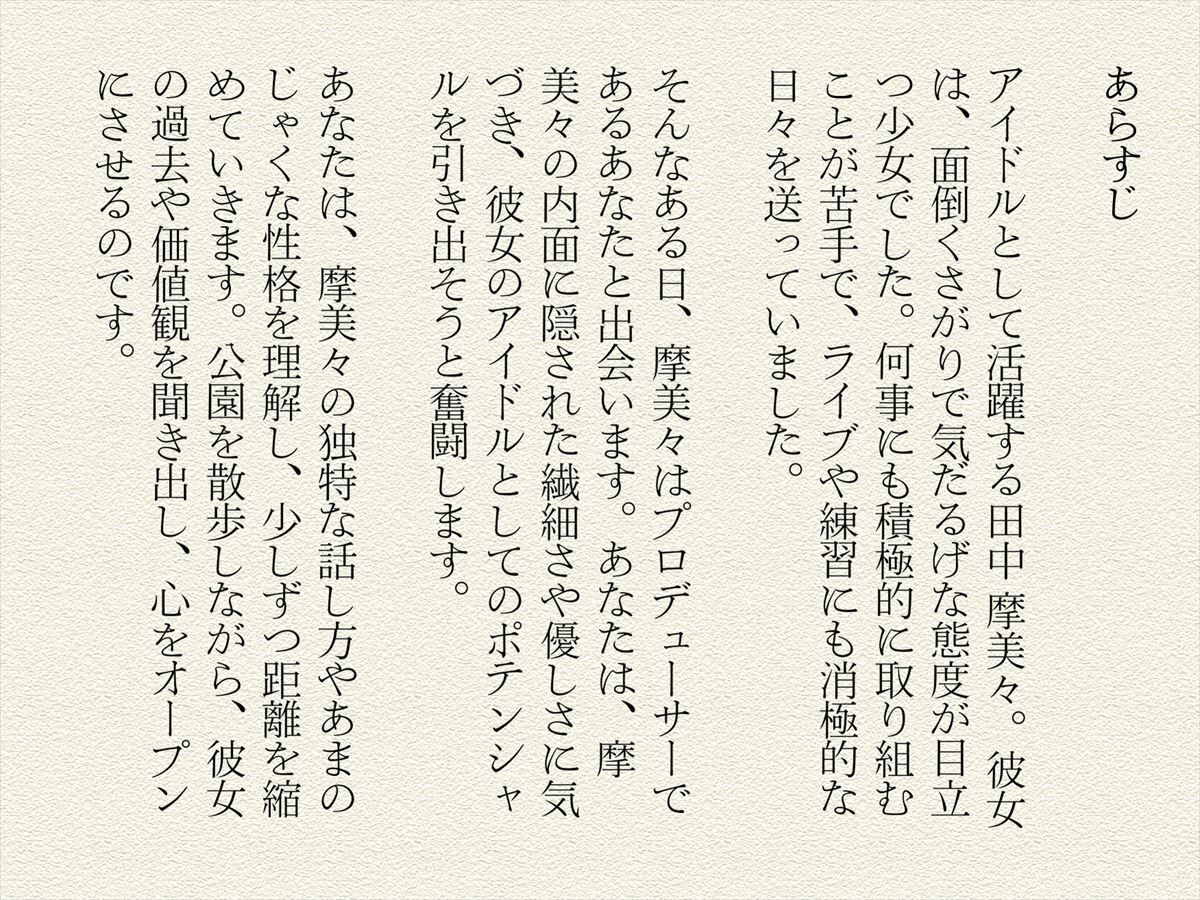 あらすじ
アイドルとして活躍する田中 摩美々。彼女
は、面倒くさがりで気だるげな態度が目立
つ少女でした。何事にも積極的に取り組む
ことが苦手で、ライブや練習にも消極的な
日々を送っていました。
そんなある日、摩美々はプロデューサーで
あるあなたと出会います。あなたは、摩
美々の内面に隠された繊細さや優しさに気
づき、彼女のアイドルとしてのポテンシャ
ルを引き出そうと奮闘します。
あなたは、摩美々の独特な話し方やあまの
じゃくな性格を理解し、少しずつ距離を縮
めていきます。公園を散歩しながら、彼女
の過去や価値観を聞き出し、心をオープン
にさせるのです。